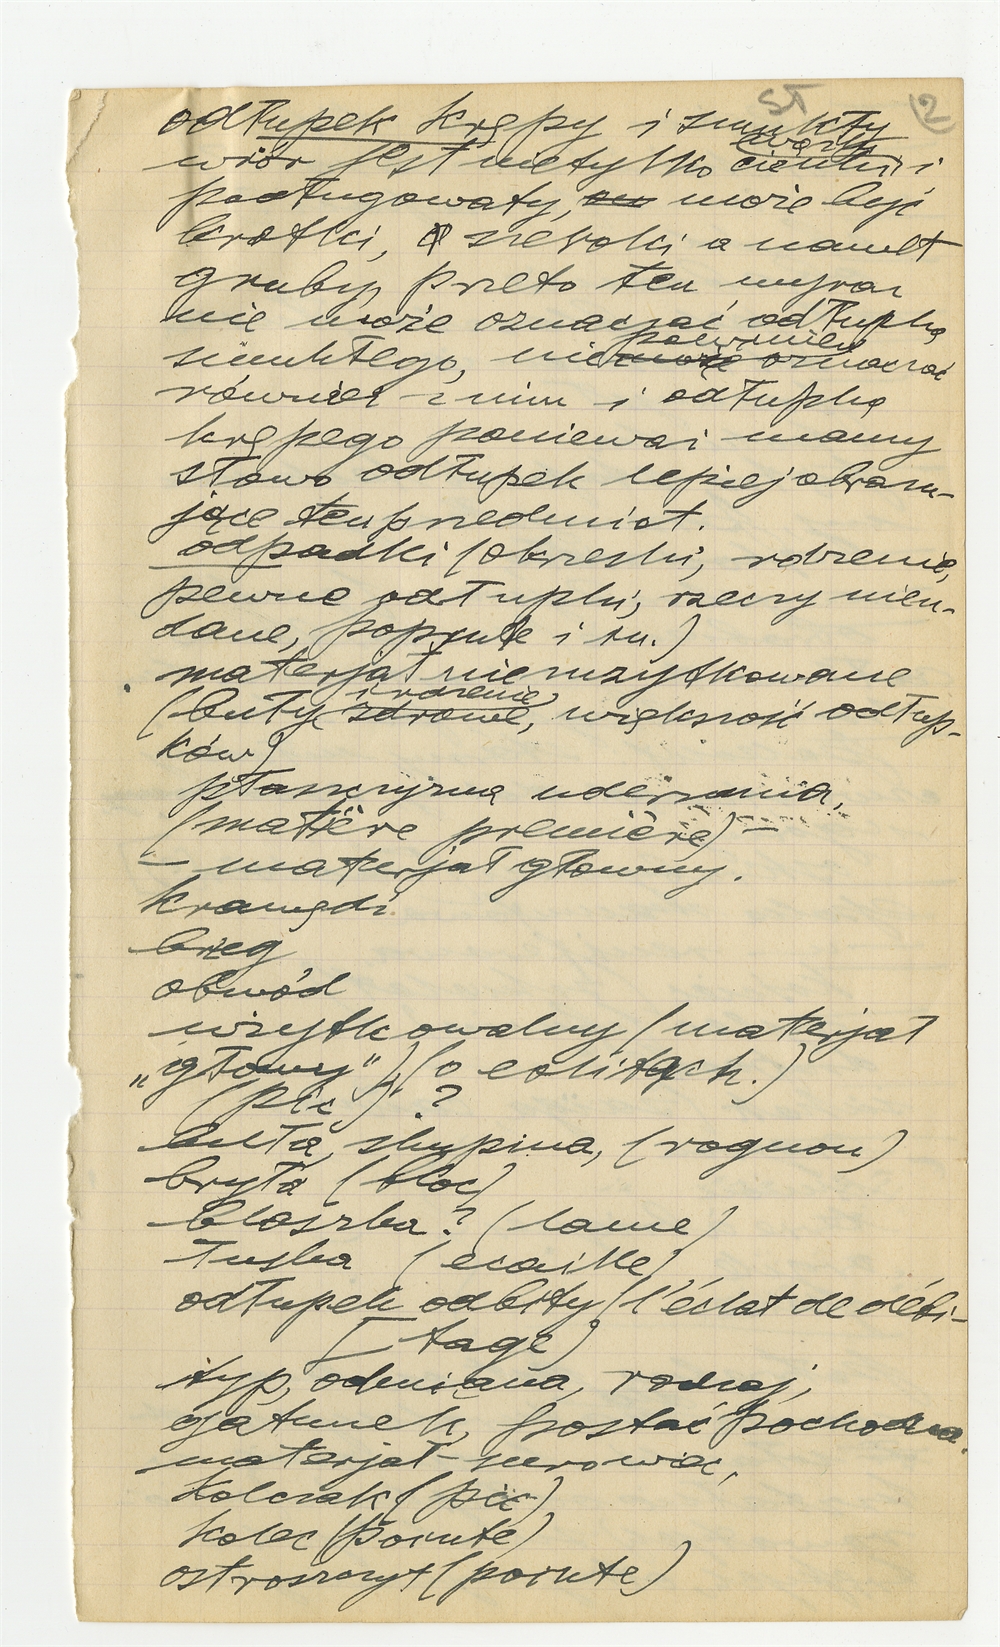 ST 2
odłupek krępy i smukły
wiór jest nietylko wązki i
podługowaty, może być
krótki, szeroki a nawet
gruby, przeto ten wyraz
nie może oznaczać odłupka
smukłego, nie powinien oznaczać
również z nim i odłupka
krępego ponieważ mamy
słowo odłupek lepiej obrazu-
jące ten przedmiot.
odpadki (okrzeski, rdzenie,
pewne odłupki, rzeczy nieu-
dane, popsute i in.)
materjał niezużytkowane
(buły i rdzenie zdrowe, większość odłup-
ków)
płaszczyzna uderzania,
(matière première) –
– materjał główny.
krawędź
brzeg
obwód
użytkowalny (materjał
„główny”) (o eolitach.)
(pic) ?
bułta, skupina, (rognon)
bryła (bloc)
blaszka? (lame)
łuska (ecaille)
odłupek odbity (l'éclat de débi-
[tage)
typ, odmiana, rodzaj,
gatunek, postać pochodna.
materjał – surowiec,
kolczak (pic)
kolec (pointe)
ostroszczyt (pointe)